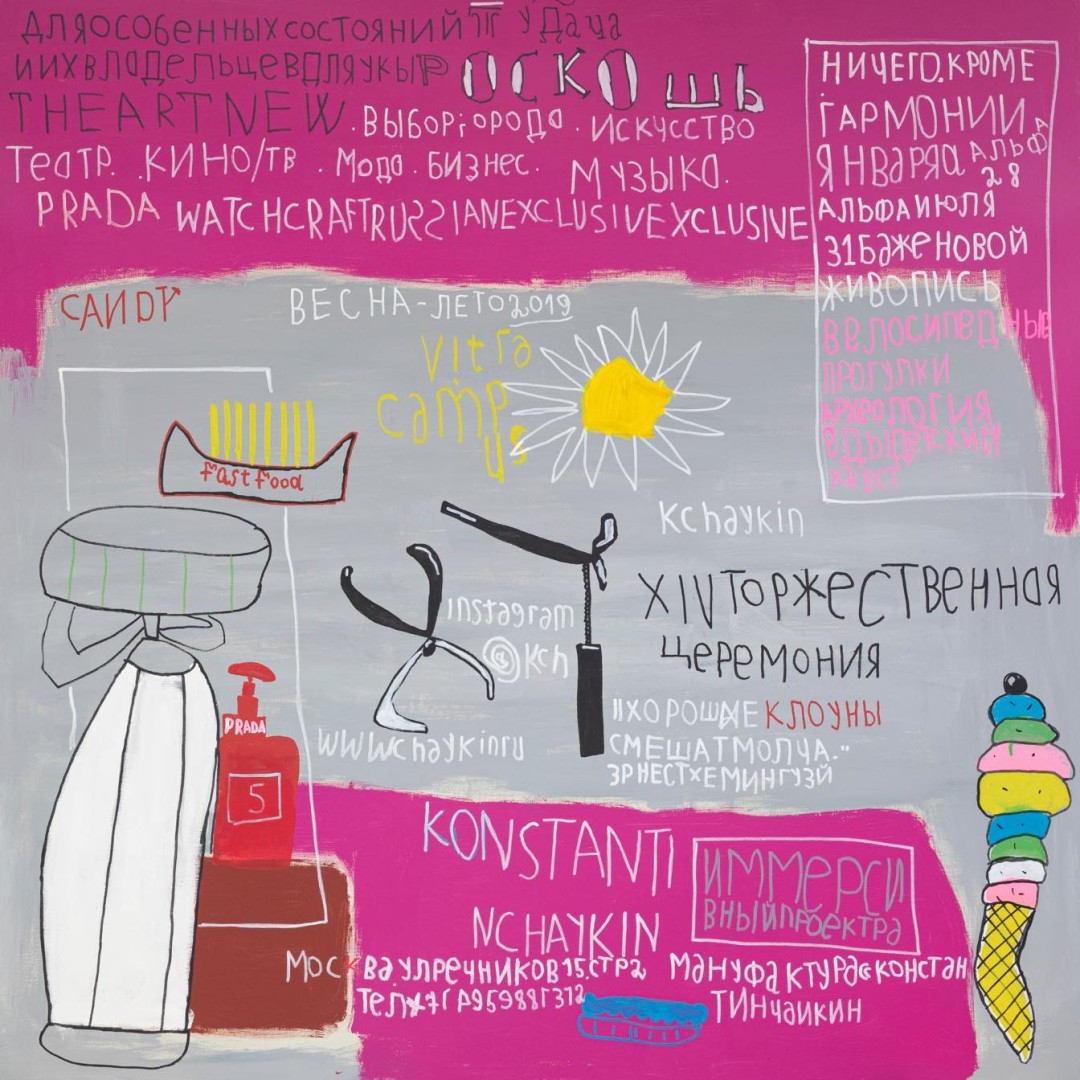 ДЛЯОСОБЕННЫХСОСТОЯНИЙ П УДАЧА
ИИХВЛАДЕЛЬЦЕВДЛЯУКЫР ОСКОШЬ
THEARTNEW.ВЫБОРГОРОДА.ИСКУССТВО
ТЕАТР. .КИНО/ТВ .МОДА.БИЗНЕС. МУЗЫКА.
PRADA WATCHCRAFTRUSSIANEXCLUSIVEXCLUSIVE
НИЧЕГО.КРОМЕ
ГАРМОНИИ
ЯНВАРЯА АЛЬФА
28
АЛЬФАИЮЛЯ
31БАЖЕНОВОЙ
ЖИВОПИСЬ
ВЕЛОСИПЕДНЫЕ
ПРОГУЛКИ
АРХЕОЛОГИЯ
CANDY
ВЕСНА-ЛЕТО2019
vitra
camp
us
fastfood
Kchaykin
instagram
@Kch
XIVТОРЖЕСТВЕННАЯ
ЦЕРЕМОНИЯ
PRADA
5
"ХОРОШИЕ КЛОУНЫ
СМЕШАТМОЛЧА."
ЭРНЕСТХЕМИНГУЭЙ
WWWchaykinru
KONSTANTI
NCHAYKIN
ИММЕРСИ
ВНЫЙПРОЕКТРА
МОСКВА.УЛРЕЧНИКОВ15.СТР2
МАНУФАКТУРА«КОНСТАН
ТИНЧАЙКИН